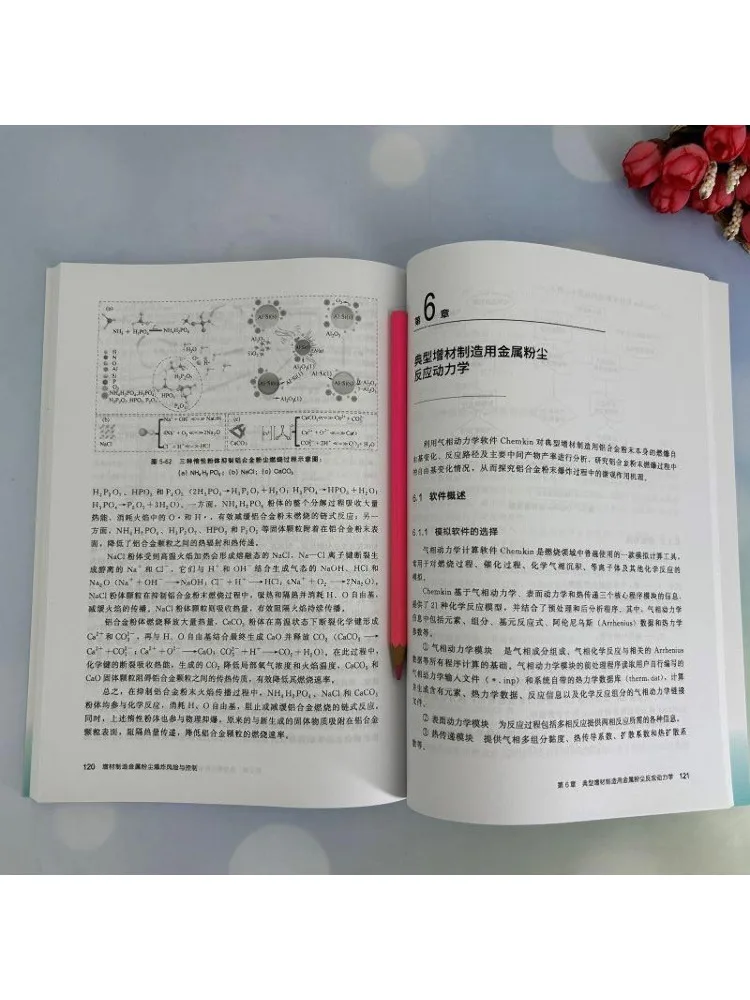 (a)
NH₃ + H₃PO₄
NH₄H₂PO₄
HPO₃
P₂O₅
Al-Si(s)
Al-Si(s)
Al₂O₃
Al₂O₃
SiO₂
Al-Si(s)
Al-Si(l)
Al-Si(s)
Al₂O₃(l)
(b)
NaCl
(c)
CaCO₃
图 5-62 三种惰性粉体抑制铝合金粉尘燃烧过程示意图:
(a) NH₄H₂PO₄; (b) NaCl; (c) CaCO₃
H₄P₂O₇、HPO₃ 和 P₂O₅ (2H₃PO₄→H₄P₂O₇+H₂O; H₃PO₄→HPO₃+H₂O;
H₃PO₄→P₂O₅+3H₂O)。一方面,NH₄H₂PO₄ 粉体的整个分解过程吸收大量
热能、消耗火焰中的 O·和 H·,有效减缓铝合金粉末燃烧的链式反应;另一
方面,NH₄H₂PO₄、H₄P₂O₇、HPO₃ 和 P₂O₅ 等固体颗粒附着在铝合金粉末表
面,降低了铝合金颗粒之间的热辐射和热传递。
NaCl 粉体受到高温火焰加热会形成熔融态的 NaCl。Na—Cl 离子键断裂生
成游离的 Na⁺ 和 Cl⁻,它们与 H⁺ 和 OH⁻ 结合生成气态的 NaOH、HCl 和
Na₂O (Na⁺+OH⁻→NaOH; Cl⁻+H⁺→HCl; 4Na⁺+O₂→2Na₂O)。
NaCl 粉体颗粒在抑制铝合金粉末燃烧过程中,吸热和隔热并消耗 H、O 自由基,
减缓火焰的传播。NaCl 粉体颗粒则吸收热量,有效阻隔火焰持续传播。
铝合金粉体燃烧释放大量热量,CaCO₃ 粉体在高温状态下断裂化学键形成
Ca²⁺ 和 CO₃²⁻,再与 H、O 自由基结合最终生成 CaO 并释放 CO₂ (CaCO₃→
Ca²⁺+CO₃²⁻; Ca²⁺+O²⁻→CaO; CO₃²⁻+H⁺→CO₂+H₂O)。在此过程中,
化学键的断裂吸收热能,生成的 CO₂ 降低局部氧气浓度和火焰温度,CaCO₃ 和
CaO 固体颗粒阻碍铝合金颗粒之间的传热传质,有效降低其燃烧速率。
总之,在抑制铝合金粉末火焰传播过程中,NH₄H₂PO₄、NaCl 和 CaCO₃
粉体均参与化学反应,消耗 H、O 自由基,阻止或减缓铝合金燃烧的链式反应,
同时,上述惰性粉体也参与物理抑爆。原来的与新生成的固体物质吸附在铝合金
颗粒表面,阻隔热量传递,降低铝合金颗粒的燃烧速率。
120 增材制造金属粉尘爆炸风险与控制
第 6 章
典型增材制造用金属粉尘
反应动力学
利用气相动力学软件 Chemkin 对典型增材制造用铝合金粉末本身的燃爆自
由基变化、反应路径及主要中间产物产率进行分析,研究铝合金粉末燃爆过程中
的自由基变化情况,从而探究铝合金粉末爆炸过程中的微观作用机理。
6.1 软件概述
6.1.1 模拟软件的选择
气相动力学计算软件 Chemkin 是燃烧领域中普遍使用的一款模拟计算工具,
常用于对燃烧过程、催化过程、化学气相沉积、等离子体及其他化学反应的
模拟。
Chemkin 基于气相动力学、表面动力学和热传递三个核心程序模块的信息,
提供了 21 种化学反应模型,并结合了预处理和后分析程序。其中,气相动力学
信息中包括元素、组分、基元反应式、阿伦尼乌斯(Arrhenius)数据和热力学
参数等。
① 气相动力学模块 是气相成分组成、气相化学反应与相关的 Arrhenius
数据等所有程序计算的基础。气相动力学模块的前处理程序读取用户自行编写的
气相动力学输入文件(*.inp)和系统自带的热力学数据库(therm.dat),计算
并生成含有元素、热力学数据、反应信息以及化学反应组分的气相动力学链接
文件。
② 表面动力学模块 为反应过程包括多相反应提供两相反应所需的各种信息。
③ 热传递模块 提供气相多组分黏度、热传导系数、扩散系数和热扩散系
数等。
第 6 章 典型增材制造用金属粉尘反应动力学 121